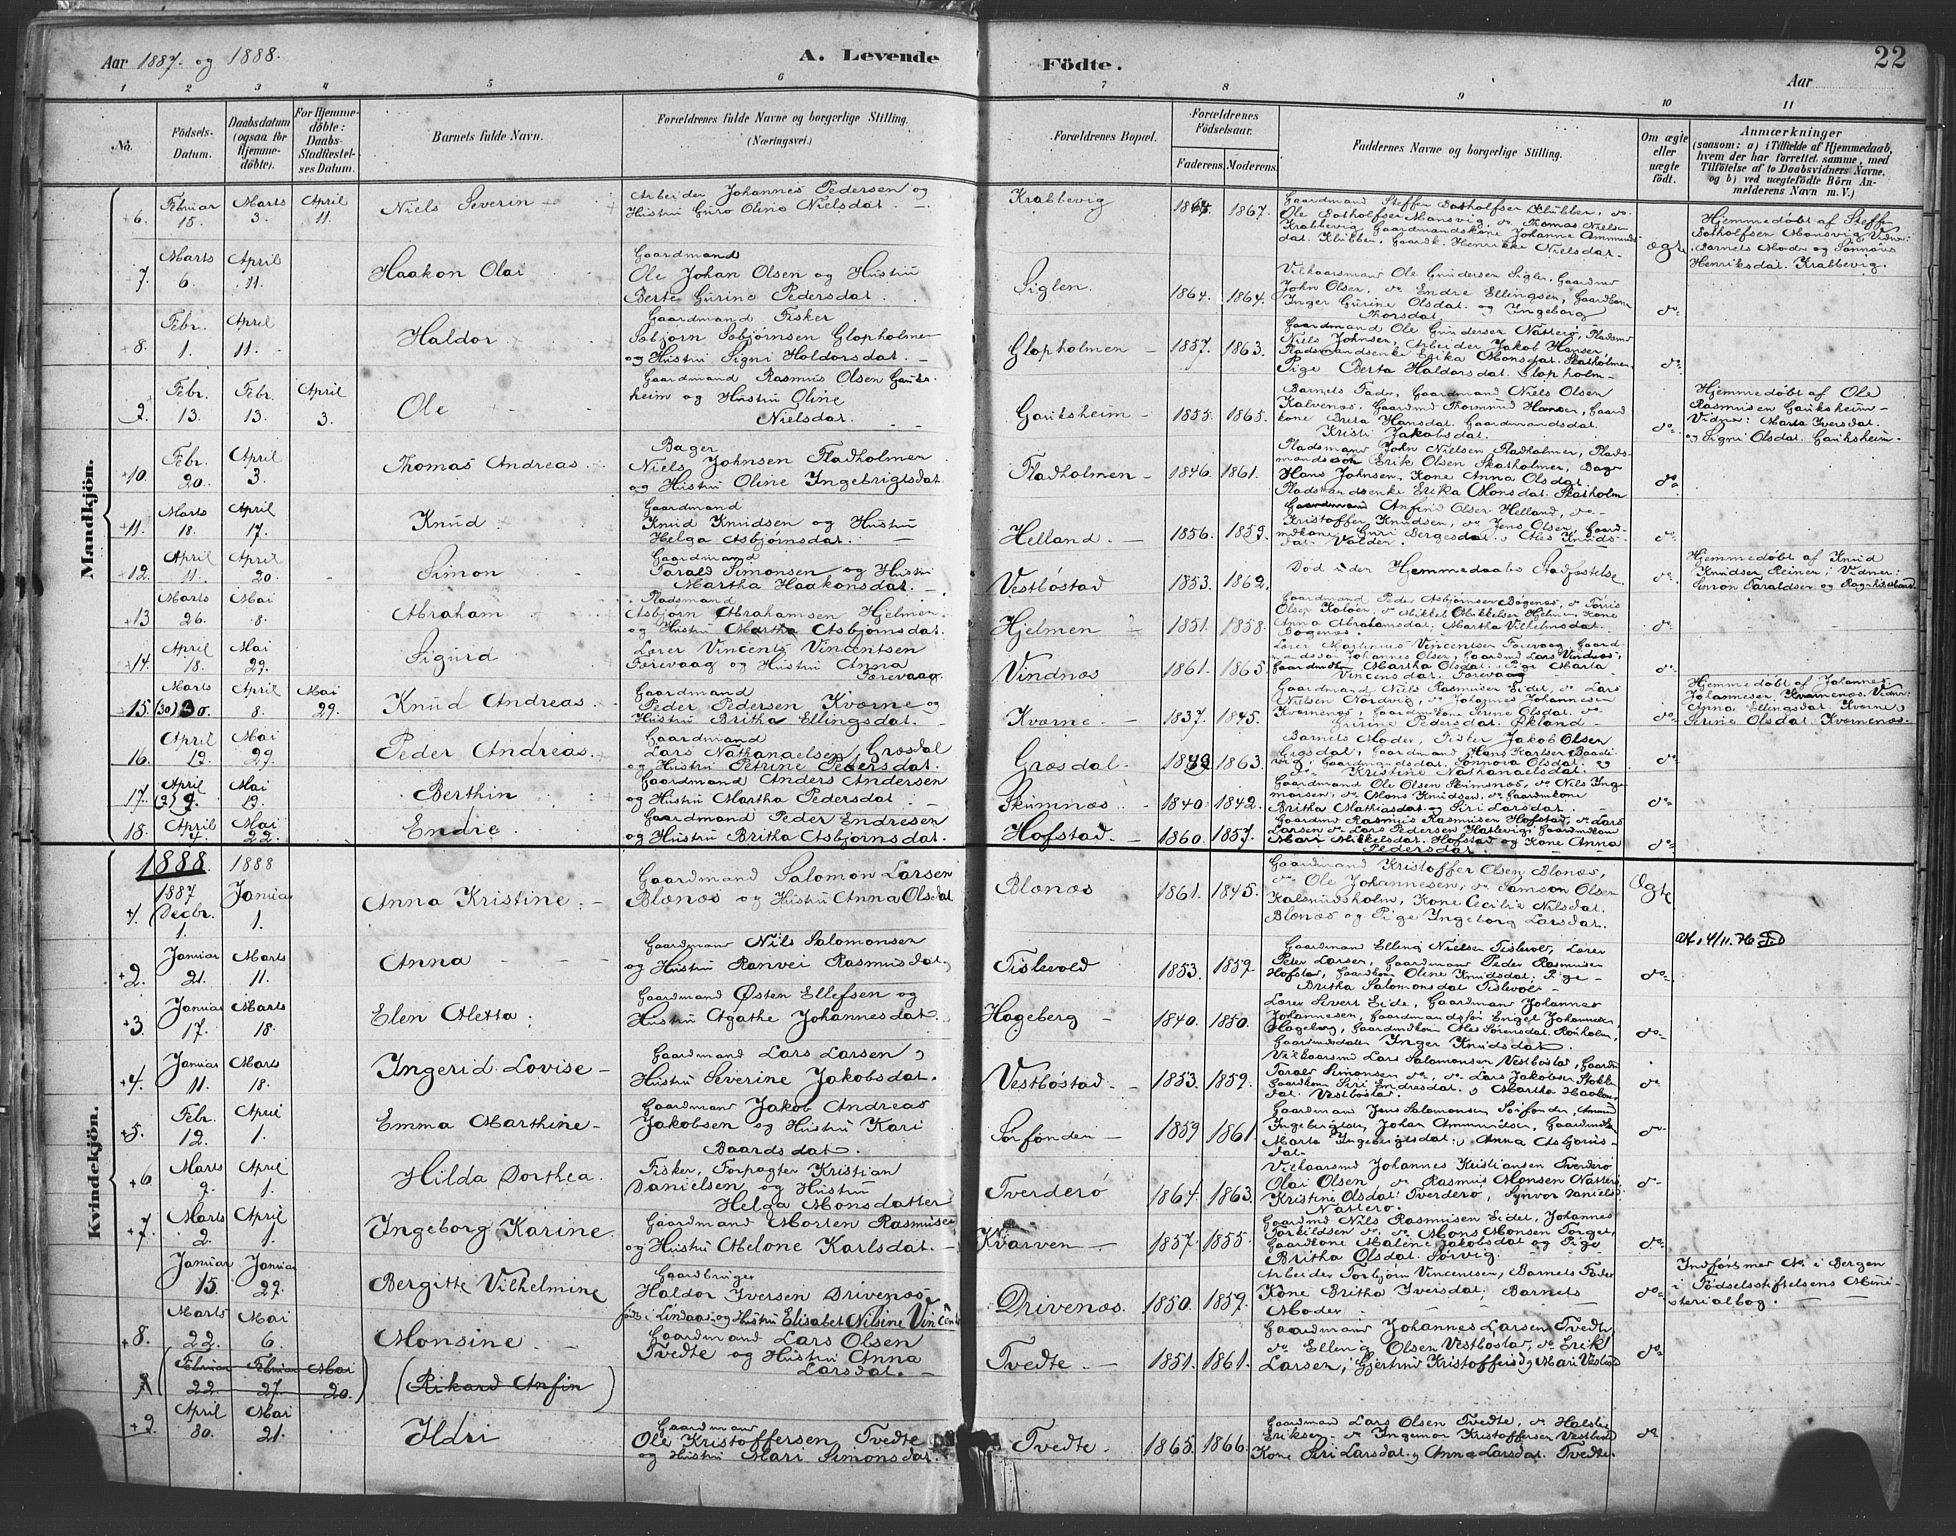 Aar 1887. og 1888.
A. Levende Födte.
Aar
22
1 2 3 4 5 6 7 8 9 10 11
No.
Födsels-Datum.
Daabsdatum (ogsaa for Hjemmedöbte).
For Hjemmedöbte: Daabs-Stadfæstelses Datum.
Barnets fulde Navn.
Forældrenes fulde Navne og borgerlige Stilling. (Næringsvei.)
Forældrenes Bopæl.
Forældrenes Födselsaar.
Faderens. Moderens.
Faddernes Navne og borgerlige Stilling.
Om ægte eller uægte födt.
Anmærkninger
(saasom: a) i Tilfælde af Hjemmedaab, hvem der har forrettet samme, med Tilföielse af to Daabsvidners Navne, og b) ved uægtefödte Börn Anmelderens Navn m. V.)
Mandkjön.
6. Februar 15. Marts 3. April 11. Niels Severin
Arbeider Johannes Pedersen og
Hustru Guro Oline Nielsdat.
Krabbevig 1867.
Ægte
Hjemmedøbt af Steffe
Botholfsen Monsvig Vidner:
Barnets Moder og Sønnøve
Henriksdat. Krabbevig.
7. Marts 6. April 11. Haakon Olai
Gaardmand
Ole Johan Olsen og Hustru
Berte Gurine Pedersdat.
Siglen. 1864. 1864.
Vilkaarsmand Ole Gundersen Siglen, Gaardmd
John Olsen, do Endre Ellingsen, Gaardkone
Inger Gurine Olsdat. og Ingeborg
Thorsdat.
do
8. Febr. 1. April 11. Haldor
Gaardmand Fisker
Sebjørn Sebjørnsen Glopholmen
og Hustru Signi Haldorsdat.
Glopholmen 1857. 1863.
Gaardmand Ole Gundersen Natterø, Pladsmd
Niels Johnsen, Arbeider Jakob Hansen,
Pladsmandsenke Erika Monsdat. Skatholmen
Pige Berta Haldorsdat. Glopholm
do
9. Febr. 13. Febr. 13. April 3. Ole
Gaardmand Rasmus Olsen Gauks-
heim og Hustru Oline
Nielsdat.
Gauksheim 1855. 1865.
Barnets Fader, Gaardmand Niels Olsen
Kalvenes, Gaardmd Thormund Hansen, Gaard
kone Brita Hansdat. Gaardmandsdat.
Kristi Jakobsdat.
do
Hjemmedøbt af Ole
Rasmusen Gauksheim
Vidner: Marta Iversdat.
og Signi Olsdat. Gauksheim
10. Febr. 20. April 3. Thomas Andreas
Bager
Niels Johnsen Fladholmen
og Hustru Oline Ingebrigtsdat.
Fladholmen 1846. 1861.
Pladsmand John Nielsen Fladholmen, Plads-
mandssøn Erik Olsen Skatholmen, Bager
Hans Johnsen, Kone Anna Olsdat.
Pladsmandsenke Erika Monsdat. Skatholm
do
11. Marts 18. April 17. Knud
Gaardmand
Knud Knudsen og Hustru
Helga Asbjørnsdat.
Helland. 1856. 1859.
Gaardmand Anfind Olsen Helland, do
Kristoffer Knudsen, do Jens Olsen, Gaard-
mdkone Guri Bergesdat. Ales Knuds-
dat.
do
12. April 11. April 20. Simon
Gaardmand
Tarald Simonsen og Hustru
Martha Haakonsdat.
Vestbøstad 1853. 1862.
Død uden Hjemmedaabs Stadfæstelse
do
Hjemmedøbt af Knud
Knudsen Reiner; Vidner:
13 Marts 26. Mai 8. Abraham
Pladsmand
Asbjørn Abrahamsen Hjelmen
og Hustru Martha Asbjørnsdat.
Hjelmen 1851. 1858.
Gaardmand Peder Asbjørnsen Bøgenæs, do
Anna Abrahamsdat. Martha Vilhelmsdat.
Bøgenæs.
do
14. April 18. Mai 29. Sigurd
Lærer Vincents Vincentsen
Førevaag og Hustru Anna
Førevaag.
Vindnæs 1861. 1865
Lærer Martinus Vincentsen Førevaag, Gaard-
Johannes Olsen, Gaardmd Lars Vindnes,
Martha Olsdat. Pige Marta
Vincensdat. Førevaag
do
15. Marts (30) 30. April 8. Mai 29. Knud Andreas
Gaardmand
Peder Pedersen Kværne og
Hustru Britha Ellingsdat.
Kværne 1837. 1845.
Gaardmand Niels Rasmusen Eidet, do Lars
Nielsen Nordvig, do Johannes Johannesen
Kvernenes, Gaardmdkone Serine Olsdat. do
Gurine Pedersdat. Økland
do
Hjemmedøbt af Johannes
Johannesen Kvernenæs. Vidner:
Anna Ellingsdat. Kværne
Serine Olsdat. Kvernenæs.
16. April 19. Mai 29. Peder Andreas.
Gaardmand
Lars Nathanaelsen Græsdal
og Hustru Petrine Pedersdat.
Græsdal. 1863.
Barnets Moder, Fisker Jakob Olsen
Græsdal, Gaardmand Hans Karlsen Baadsvig,
Gaardmandsdat. Sønnova Olsdat.
Kristine Nathanaelsdat.
do
17. April (9) 9. Mai 19. Berthin
Gaardmand Anders Andersen
og Hustru Martha Pedersdat.
Skumnæs 1840. 1842.
Gaardmand Ole Olsen Skumsnæs, do Nils Inge-
morsen, do Mons Knudsen, do Gaardkone
Britha Mathiasdat. og Siri Larsdat.
do
18. April Mai 22. Endre
Gaardmand Peder Endresen
og Hustru Britha Asbjørnsdat.
Hofstad. 1860. 1857.
Gaardmd Rasmus Rasmusen Hofstad, do Lars
Larsen do Lars Pedersen Hatlevig, Gaardmdkone
Mari Mikkelsdat. Hofstad og Kone Anna
Pedersdat.
do
Kvindekjön.
1888 1888
1. 1887 Decbr. 1. Januar 1. Anna Kristine
Gaardmand Salomon Larsen
Blænæs og Hustru Anna Olsdat
Blænæs 1861. 1845.
Gaardmand Kristoffer Olsen Blonæs,
do Ole Johannesen, do Samson Olsen
Kalsundsholm, Kone Cecilie Nilsdat.
Blænæs og Pige Ingeborg Larsdat.
Ægte
2. Januar 21. Marts 11. Anna
Gaardmand Nils Salomonsen
og Hustru Ranvei Rasmusdat.
Tislevold 1853. 1859.
Gaardmand Elling Nielsen Tislevold, Lærer
Peter Larsen, Gaardmand Peder Rasmusen
Hofstad, Gaardkone Oline Knudsdat. Pige
Britha Salomonsdat Tislevold
do
3. Januar 17. Marts 18. Elen Aletta
Gaardmand Østen Ellefsen og
Hustru Agathe Johannesdat.
Hageberg 1840. 1850.
Lærer Sivert Eide, Gaardmand Johannes
Johannesen, Gaardmandssøn Engel Johannesen
Hageberg, Gaardmdkone Ales Sørensdat. Rønholm,
Gaardmdsdatter Inger Knudsdat.
do
4. Januar 11. Marts 18. Ingerid Lovise
Gaardmand Lars Larsen
Hustru Severine Jakobsdat.
Vestbøstad. 1853. 1859.
Vilkaarsmd Lars Salomonsen Vestbøstad, Gaardm
Tarald Simonsen do, do Lars Jakobsen Stokke
Gaardkone Siri Endresdat. Martha Haakons
dat. Vestbøstad.
do
5. Febr. 12. April 1. Emma Marthine
Gaardmand Jakob Andreas
Jakobsen og Hustru Kari
Baardsdat.
Sørfonden 1859 1861.
Gaardmand Jens Salomonsen Sørfonden, Amund
Ingebrigtsen, Johan Amundsen, Gaardmdk
Marta Ingebrigtsdat. Anna Asbjørns-
dat.
do
6 Marts 9. April 1. Hilda Dorthea.
Fisker, Forpagter Kristian
Danielsen og Hustru
Helga Monsdatter
Tverderø 1864. 1863.
Vilkaarsmd Johannes Kristiansen Tverderø
Olai Olsen, do Rasmus Monsen Natterø
Kristine Olsdat. Tverderø, Synvor Daniels
Natterø.
do
7. Marts 2. April 1. Ingeborg Karine.
Gaardmand Morten Rasmusen
og Hustru Melone Karlsdat.
Kvarven 1857. 1855.
Gaardmd Nils Rasmusen Eidet, Johannes
Torkildsen do do Mons Monsen Torget,
Gaardkone Malene Jakobsdat og Pige
Britha Olsdat. Sørvig.
do
Januar 15. Januar 29. Bergitte Vilhelmine
Gaardbruger
Haldor Iversen Drivenæs
født i Lindaas og Hustru Elisabet Nilsine Vincents
Drivenæs. 1850. 1859.
Arbeider Torbjørn Vincentsen, Barnets Fader
Kone Britha Iversdat. Barnets
Moder
do
Indført med No i Bergen
i Fødselsstiftelsens Mini-
sterialbog.
8. Marts 22. Mai 6. Monsine
Gaardmand Lars Olsen
Tvedte og Hustru Anna
Larsdat.
Tvedte 1851. 1861.
Gaardmand Johannes Larsen Tvedte
do Elling Olsen Vestbøstad, do Erik
Larsen, Gjertrud Kristoffersd, Mari Vestbstd
do
(Februar 22. Februar 27. Mai 20.) (Rikard Anfin)
9. April 30. Mai 21. Ildri
Gaardmand
Ole Kristoffersen Tvedte
og Hustru Mari Simonsdat.
Tvedte. 1865. 1866.
Gaardmand Lars Olsen Tvedte, do Halsten
Eriksen do Ingemor Kristoffersen Vestbøstd
Kone Siri Larsdat. Anna Larsdat. Tvedte.
do